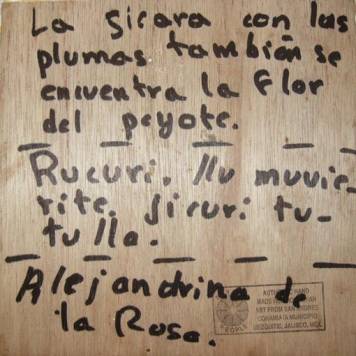 La jicara con las
plumas también se
encuentra la Flor
del peyote.
Rucuri. llu muvie-
rite. jicuri tu-
tulla.
Alejandrina de
la Rosa.
ART FROM SAN ANDRES
COHAMIATA MUNICIPIO
MEZQUITIC, JALISCO, MEX.